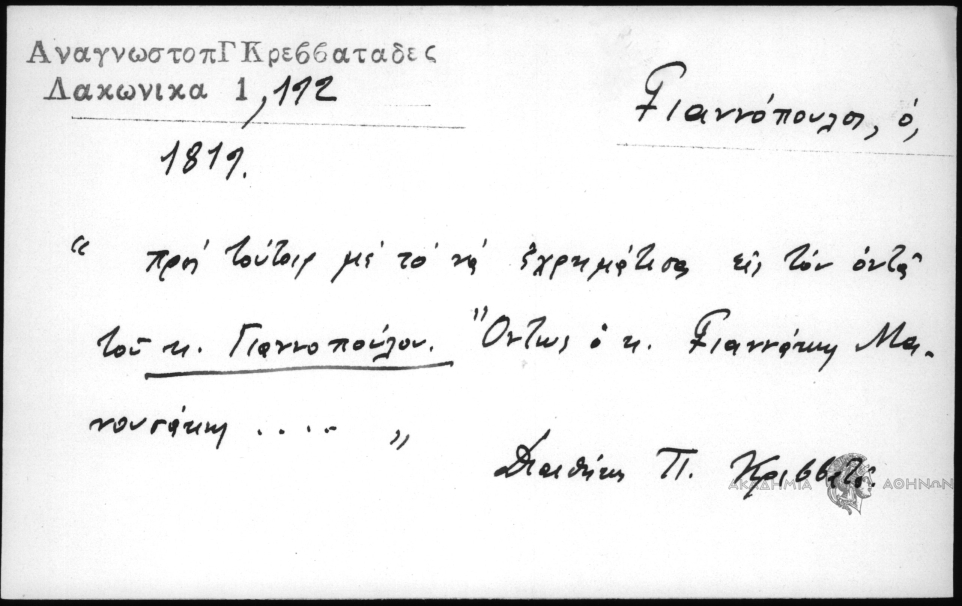 ΑναγνωστοπΓΚρεββαταδες
Λακωνικα 1, 112
Γιαννόπουλος, ὁ,
1819.
“ πρὸς τούτοις μὲ τὸ νὰ ἐχρημάτισα εἰς τὸν ὀντᾶ
τοῦ κ. Γιαννοπούλου. Ὄντως ὁ κ. Γιαννάκης Μα-
νουσάκης .... „
Διαθήκη Π. Κρεββατᾶ.
ΑΚΑΔΗΜΙΑ ΑΘΗΝΩΝ